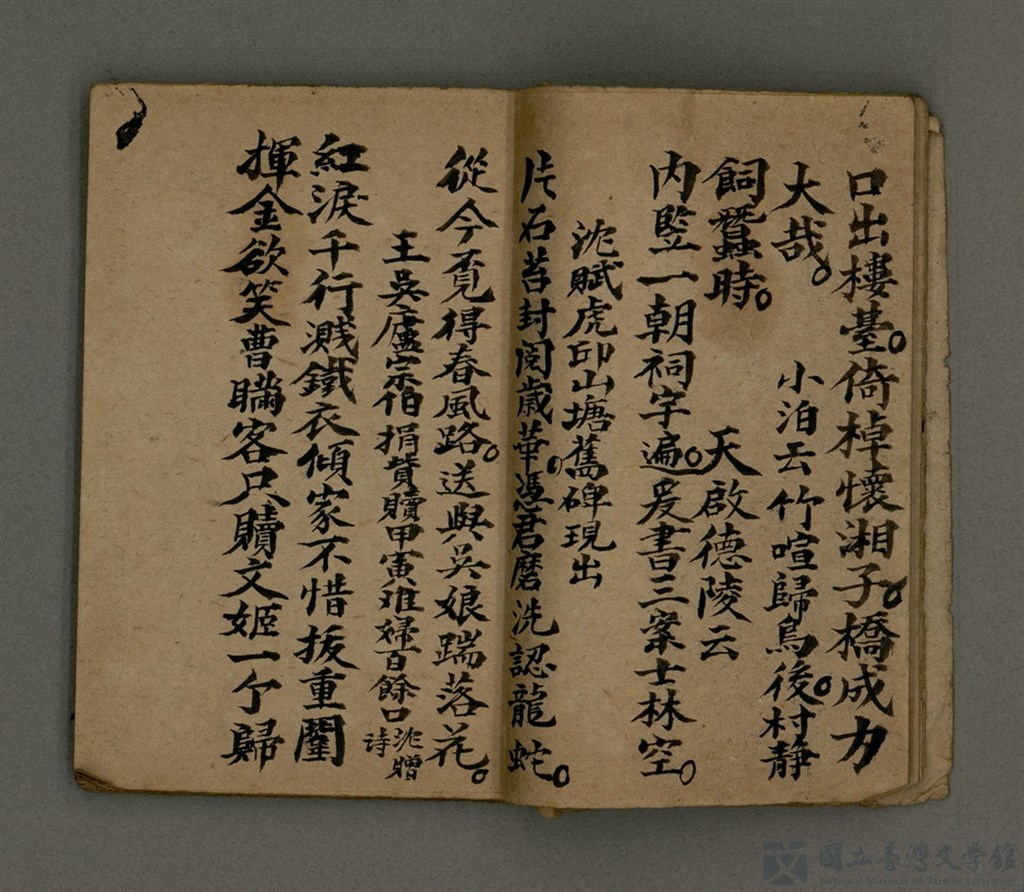 口出樓臺。倚棹懷湘子。橋成力
大哉。　小泊云竹喧歸鳥後。村静
飼蚕時。　天啟德陵云
内監一朝祠宇遍。爰書三案士林空。
沈賦虎邱山塘舊碑現出
片石苔封閲歲華。憑君磨洗認龍蛇。
從今覓得春風路。送與吳娘踹落花。
王吳廬宗伯捐貲贖甲寅难婦百餘口沈贈诗
紅淚千行濺鐵衣傾家不惜拔重闈
揮金欲笑曹瞞客只贖文姬一个歸
國立臺灣文學館
National Museum of Taiwan Literature